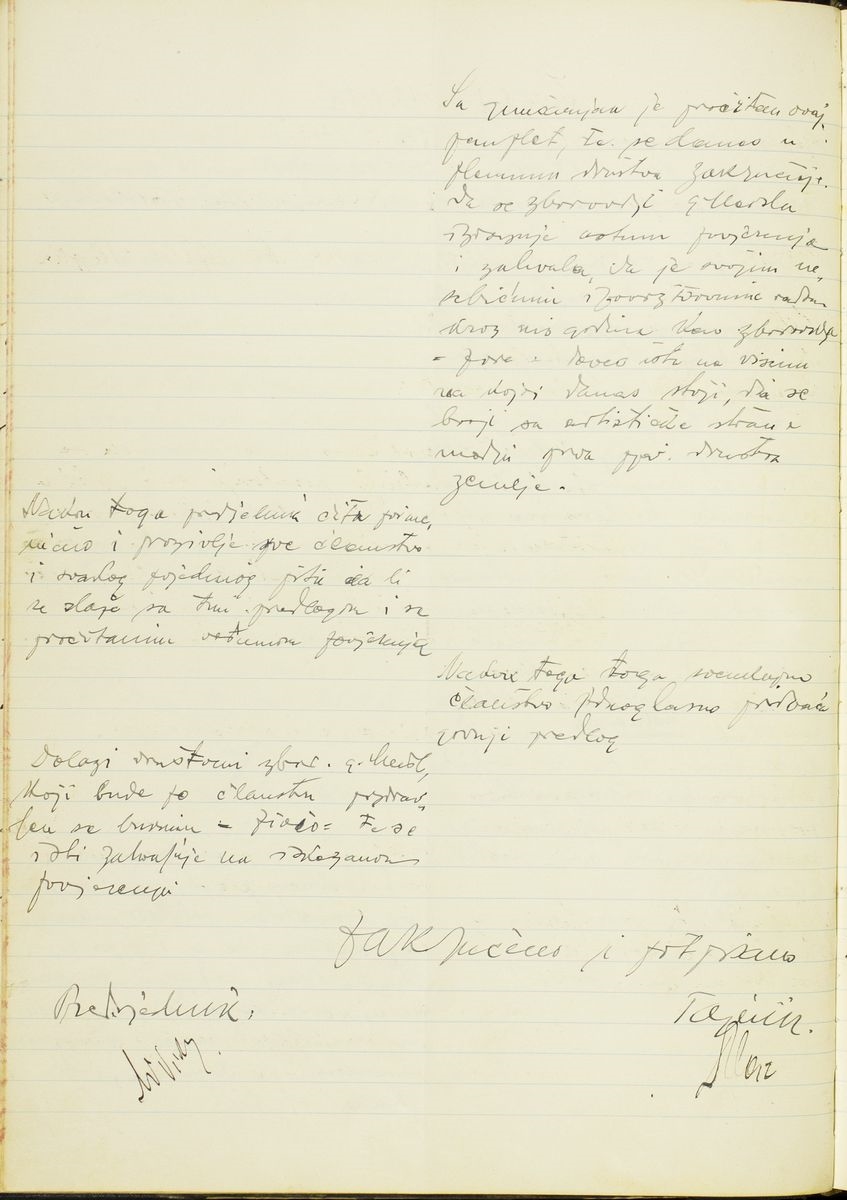 Sa je pročitan ovaj
pamflet, te se danas u
plenumu društva zaključuje.
da se zborovodji g.
izrazuje votum povjerenja
i zahvala, da je svojim ne„
sebičnim i radom
kroz niz godina kao zborovodja
= Zore = doveo isti na visinu
na kojoj danas stoji, da se
broji sa artističke strane
medju prva pjev. društva
zemlje.
Nakon toga predjelnik čita poime„
nično i prozivlje sve članstvo
i svakog pojedinog pita da li
se slaže sa tim predlogom i sa
pročitanim votumom povjerenja
Nakon toga toga sveukupno
članstvo jednoglasno prihvaća
gornji predlog
Dolazi društveni zbor. g.
koji bude po članstvu pozdrav„
ljen sa burnim = Živio = te se
isti zahvaljuje na iskazanom
povjerenju
Zaključeno i potpisano
Predsjednik:
Tajnik.